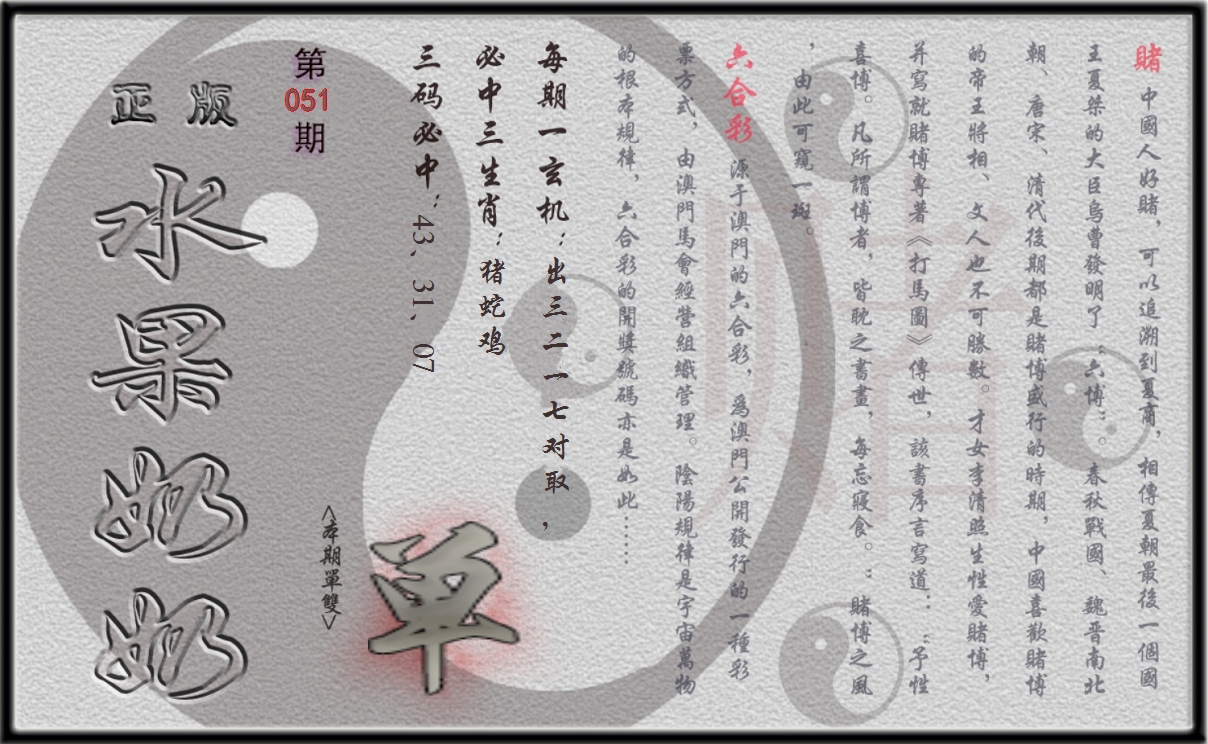 賭 中國人好賭，可以追溯到夏商，相傳夏朝最後一個國
王夏桀的大臣烏曹發明了“六博”。春秋戰國、魏晉南北
朝、唐宋、清代後期都是賭博盛行的時期，中國喜歡賭博
的帝王將相、文人也不可勝數。才女李清照生性愛賭博，
并寫就賭博專著《打馬圖》傳世，該書序言寫道：“予性
喜博。凡所謂博者，皆眈之書畫，每忘寢食。：賭博之風
，由此可窺一斑。
六合彩 源于澳門的六合彩，為澳門公開發行的一種彩
票方式，由澳門馬會經營組織管理。陰陽規律是宇宙萬物
的根本規律，六合彩的開獎號碼亦是如此……
每期一玄机：出三二一七对取，
必中三生肖：猪蛇鸡
三码必中：43、31、07
单
<本期單雙>
第
051
期
正版
水果奶奶
赌